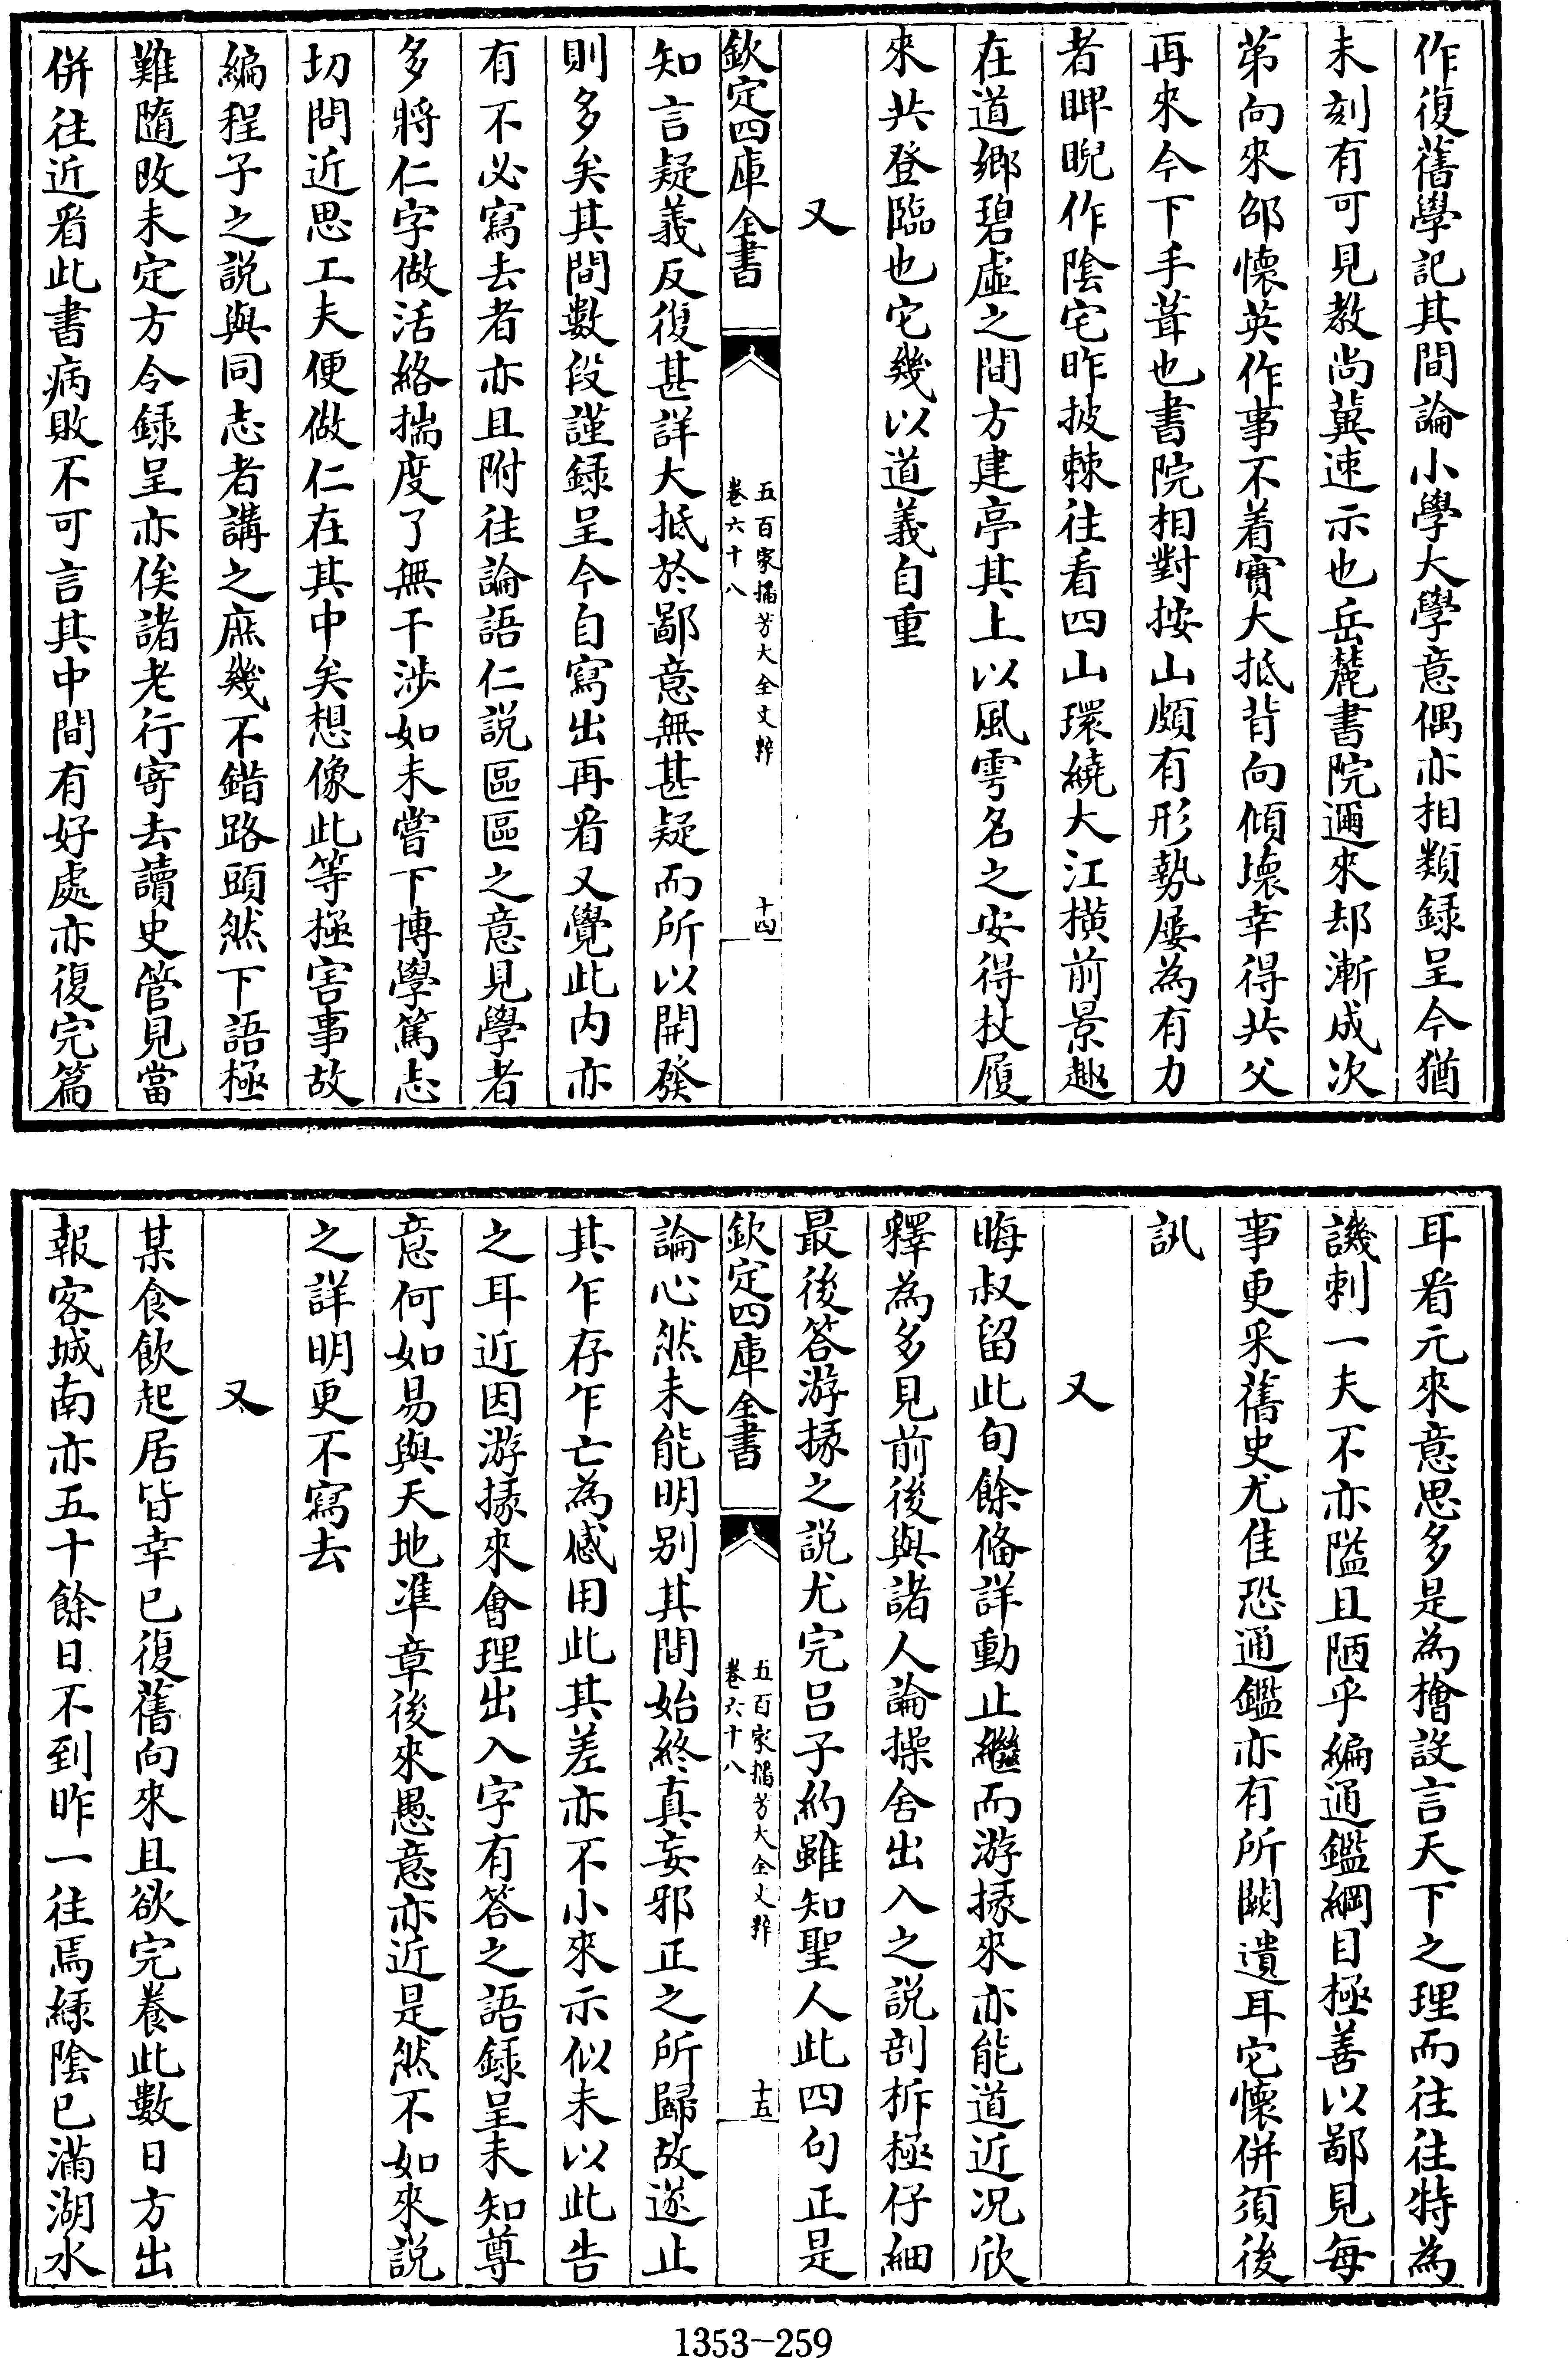 作復舊學記其間論小學大學意偶亦相類録呈今猶
未刻有可見教尚冀速示也岳麓書院邇來却漸成次
第向來邵懷英作事不着實大抵背向傾壊幸得共父
再來今下手葺也書院相對按山頗有形勢屢為有力
者睥睨作陰宅昨披棘往看四山環繞大江横前景趣
在道鄉碧虛之間方建亭其上以風雩名之安得杖履
來共登臨也它幾以道義自重
又
欽定四庫全書
五百家播芳大全文粹
卷六十八
十四
知言疑義反復甚詳大抵於鄙意無甚疑而所以開發
則多矣其間數段謹録呈今自寫出再看又覺此内亦
有不必寫去者亦且附往論語仁説區區之意見學者
多將仁字做活絡揣度了無干涉如未嘗下博學篤志
切問近思工夫便做仁在其中矣想像此等極害事故
編程子之説與同志者講之庶幾不錯路頭然下語極
難隨改未定方令録呈亦俟諸老行寄去讀史管見當
併往近看此書病敗不可言其中間有好處亦復完篇
耳看元來意思多是為檜設言天下之理而往往特為
譏刺一夫不亦隘且陋乎編通鑑綱目極善以鄙見每
事更采舊史尤佳恐通鑑亦有所闕遺耳它懷併須後
訊
又
晦叔留此旬餘備詳動止繼而游掾來亦能道近况欣
釋為多見前後與諸人論操舍出入之説剖析極仔細
最後答游掾之説尤完吕子約雖知聖人此四句正是
欽定四庫全書
五百家播芳大全文粹
卷六十八
十五
論心然未能明别其間始終真妄邪正之所歸故遂止
其乍存乍亡為感用此其差亦不小來示似未以此告
之耳近因游掾來會理出入字有答之語録呈未知尊
意何如易與天地凖章後來愚意亦近是然不如來説
之詳明更不寫去
又
某食飲起居皆幸已復舊向來且欲完養此數日方出
報客城南亦五十餘日不到昨一往焉緑陰已滿湖水
1353-259